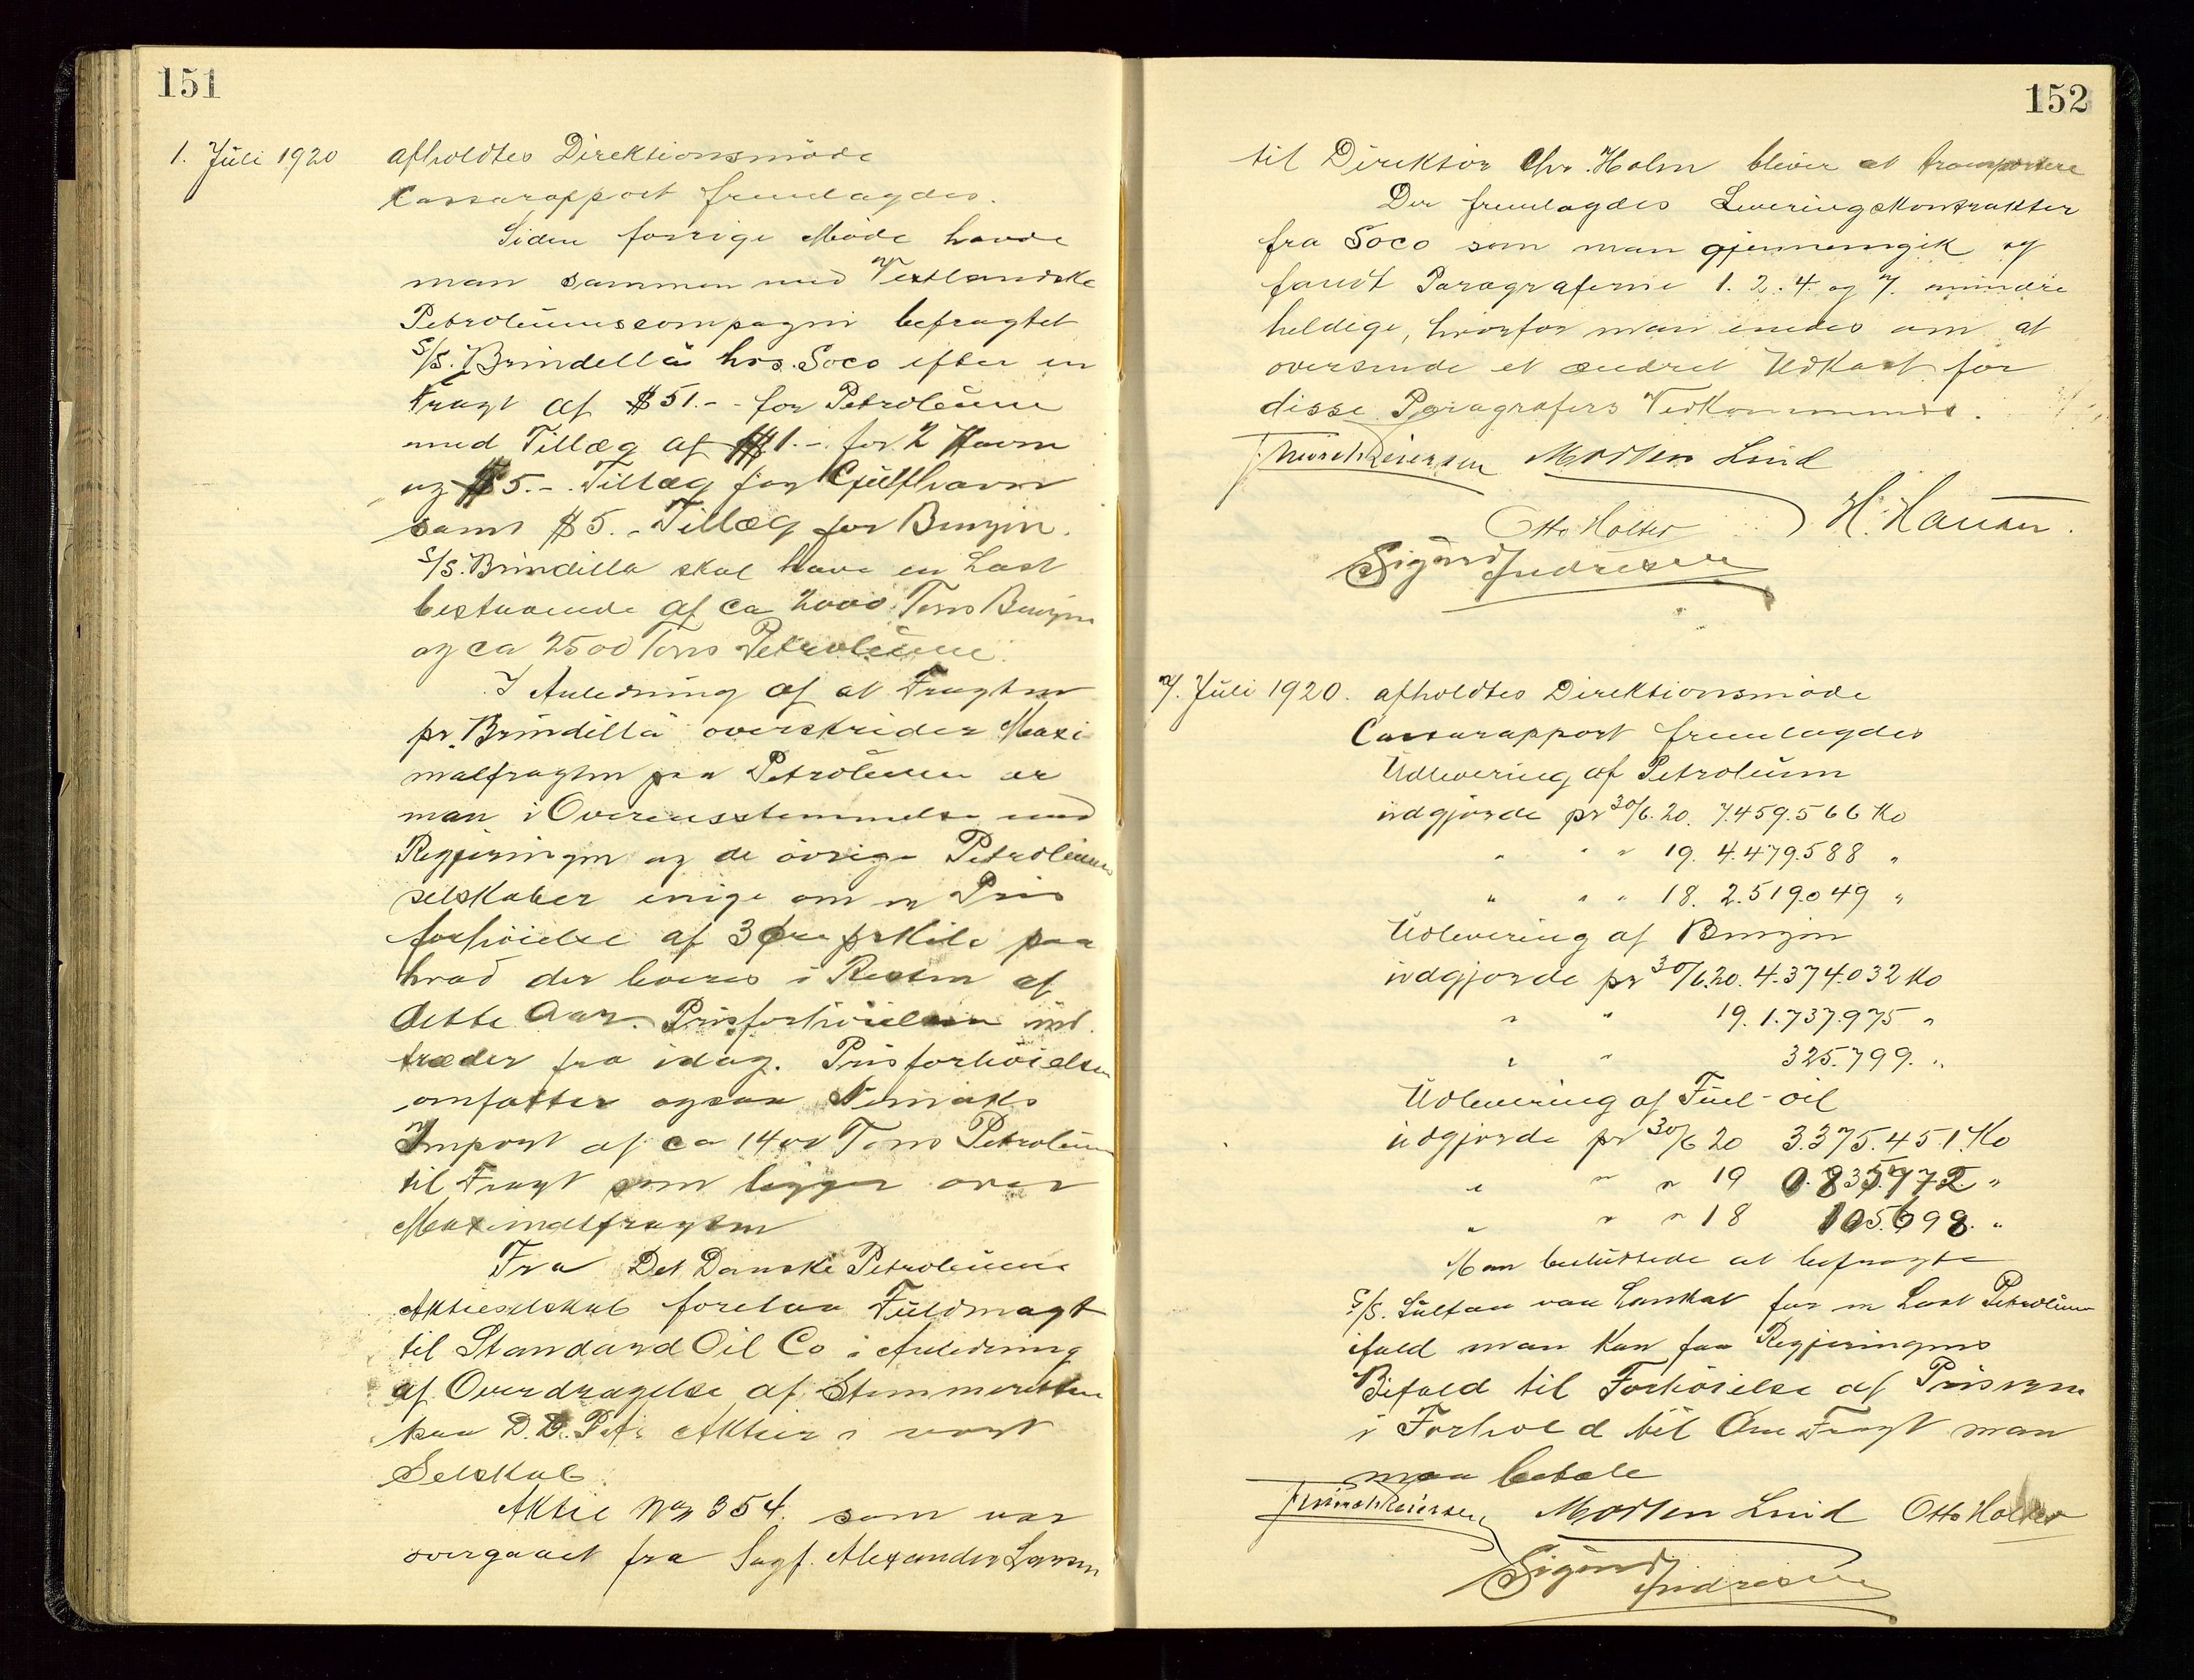 151
1. Juli 1920 afholdtes Direktionsmöde
Cassarapport fremlagdes.
Siden forrige Möde havde
man sammen med Vestlandske
Petroleumscompagni befragtet
S/S. "Brindilla" hos Soco efter en
Fragt af $51.- for Petroleum
med Tillæg af $1.- for 2 Havne
og $5.- Tillæg for Gulfhavn
samt $5.- Tillæg for Benzin.
S/S. Brindilla skal have en Last
bestaaende af ca 2000 Tons Benzin
og ca 2500 Tons Petroleum.
I Anledning af at Fragten
pr. "Brindilla" overskrider Maxi
malfragten paa Petroleum er
man i Overensstemmelse med
Regjeringen og de övrige Petroleums
selskaber enige om en Pris
forhöielse af 3 Øre pr Kilo paa
hvad der leveres i Resten af
dette Aar. Prisforhöielsen ind
træder fra idag. Prisforhöielsen
omfatter ogsaa
Import af ca 1400 Tons Petroleum
til Fragt som ligger over
Maximalfragten
Fra Det Danske Petroleums
Aktieselskab forelaa Fuldmagt
til Standard Oil Co i Anledning
af Overdragelse af Stemmeretten
paa D.D.P.A. Aktier i vort
Selskab.
Aktie No 354. som var
overgaaet fra Sagf. Alexander Larsen
152
til Direktör Chr. Holm bliver at transportere
Der fremlagdes Leveringskontrakter
fra Soco som man gjennemgik og
fandt Paragraferne 1. 2. 4. og 7. mindre
heldige, hvorfor man enedes om at
oversende et ændret Udkast for
disse Paragrafers Vedkommende.
Morten Lind
Otto Holter H. Hansen.
Sigurd Andresen
7. Juli 1920. afholdtes Direktionsmöde
Cassarapport fremlagdes
Udlevering af Petroleum
udgjorde pr 30/6.20. 7.459.566 Ko
" " " 19. 4.479.588 "
" " " 18. 2.519.049 "
Udlevering af Benzin
udgjorde pr 30/6.20. 4.374.032 Ko
" " 19. 1.737.975 "
" " 325.799. "
Udlevering af Fuel-oil
udgjorde pr 30/6 20 3.375.451. Ko
" " " 19 0.835.972. "
" " " 18 105.698. "
Man besluttede at befragte
S/S. Sultan van Lankat for en Last Petroleum
ifald man kan faa Regjeringens
Bifald til Forhöielse af Priserne
i Forhold til den Fragt man
maa betale
Morten Lind Otto Holter
Sigurd Andresen